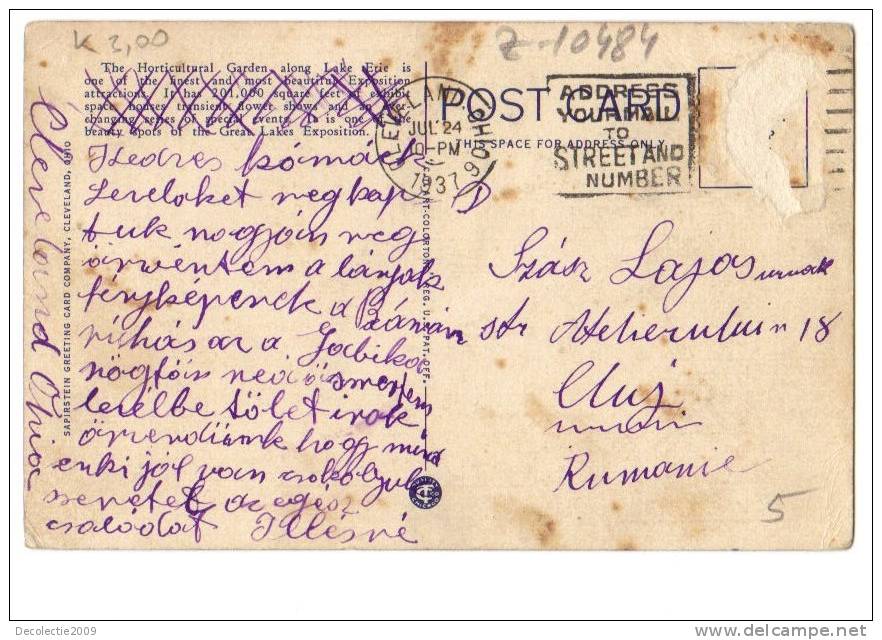 K 3,00
Z-10484
The Horticultural Garden along Lake Erie is
one of the finest and most beautiful Exposition
attractions. It has 201,000 square feet of exhibit
space, houses transient flower shows and an ever-
changing series of special events. It is one of the
beauty spots of the Great Lakes Exposition.
CLEVELAND, OHIO
JUL 24
10-PM
1937
POST CARD
THIS SPACE FOR ADDRESS ONLY
ADDRESS
YOUR MAIL
TO
STREET AND
NUMBER
Cleveland Ohio
SAPIRSTEIN GREETING CARD COMPANY, CLEVELAND, OHIO
Kedves
Leveloket megkap
tuk nagyon meg
örventem a lányok
fényképenek a
ruhás az a
levelbe tölet irok
örvendünk hogy mind
enki jól van csokolyuk
az egész
családot Illésné
ART-COLORTONE REG. U.S. PAT. OFF.
Szász Lajos urnak
str 18
Cluj
Rumanie
5
Decolectie2009
www.delcampe.net